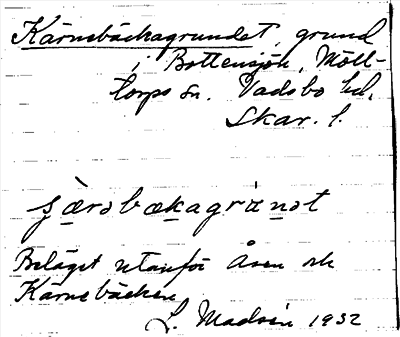 Kärnebäckagrundet, grund
i Bottensjön, Möll-
torps sn. Vadsbo hd,
Skar. l.
Beläget utanför Åsen och
Kärnebäcken
L. Madsén 1932